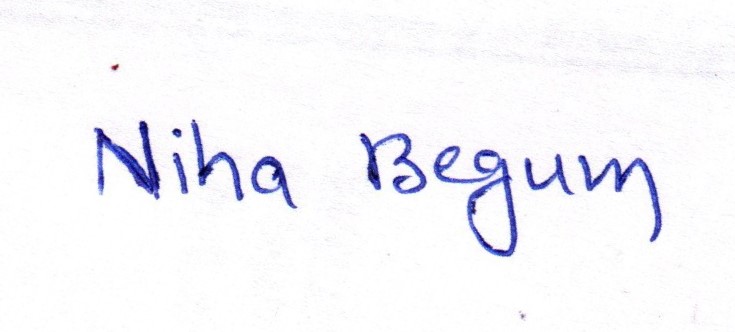 Niha Begum